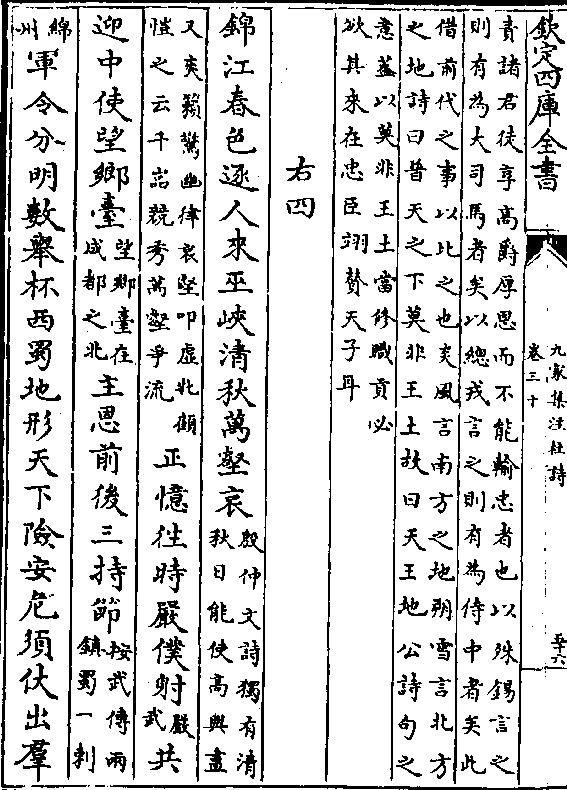 欽定四庫全書
九家集注杜詩
卷三十
五十六
責諸君徒享高爵厚恩而不能輸忠者也以殊錫言之
則有為大司馬者矣以總戎言之則有為侍中者矣此
借前代之事以比之也炎風言南方之地朔雪言北方
之地詩曰普天之下莫非王土故曰天王地公詩句之
意蓋以莫非王土當修職貢必
欲其來在忠臣翊贊天子耳
右四
錦江春色逐人來巫峽清秋萬壑哀殷仲文詩獨有清秋日能使高興盡
又爽籟驚幽律哀壑叩虛牝顧愷之云千嵒競秀萬壑爭流正憶往時嚴僕射嚴武共
迎中使望鄉臺望鄉臺在成都之北主恩前後三持節按武傳兩鎮蜀一刺
綿州軍令分明數舉杯西蜀地形天下險安危須仗出羣